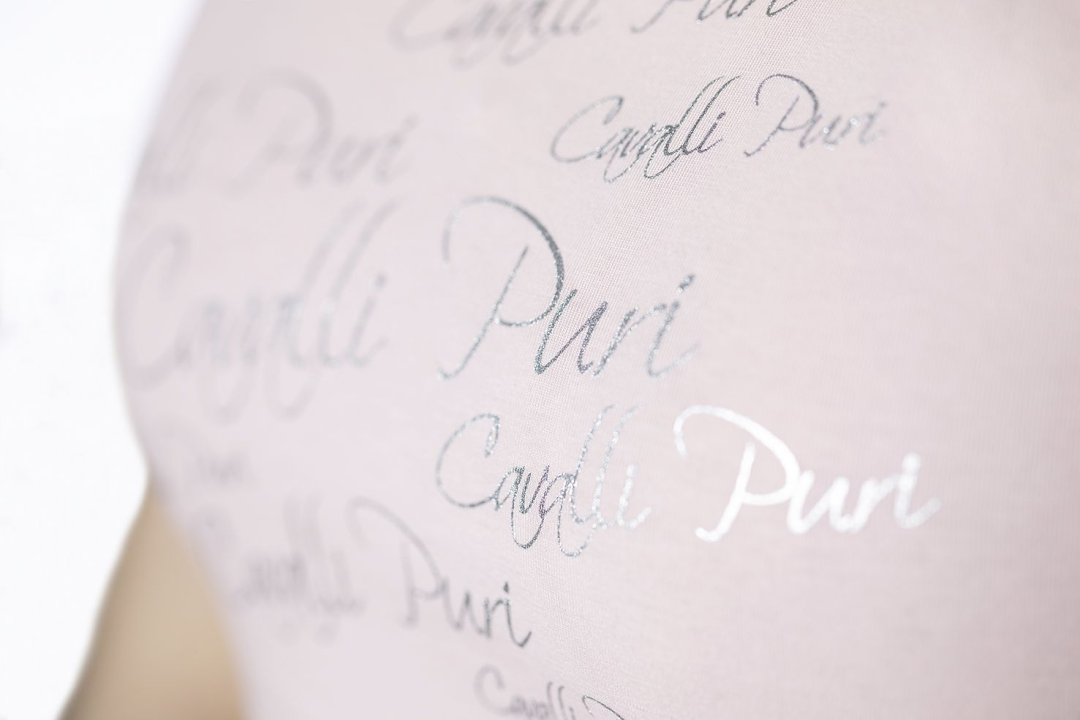 Cavalli Puri
Cavalli Puri
lli Puri
Cavalli Puri
Cavalli Puri
Cavalli Puri
Cavalli